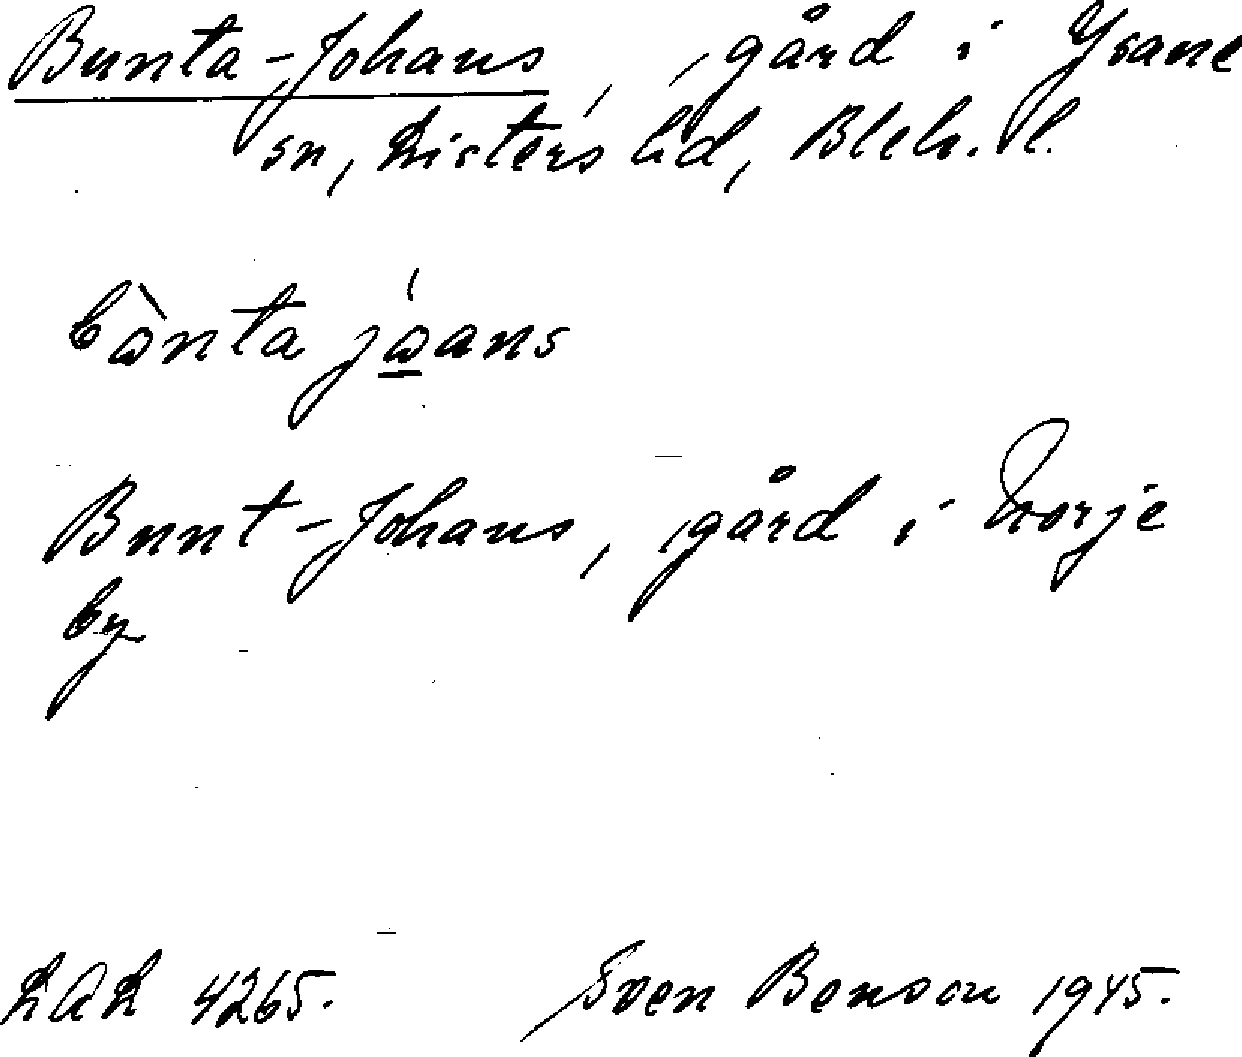 Bunta-Johans, gård i Ysane
sn, Listers hd, Blek. l.
bò̱nta jó̱ans
Bunt-Johans, gård i Norje
by
LAL 4265.
Sven Benson 1945.